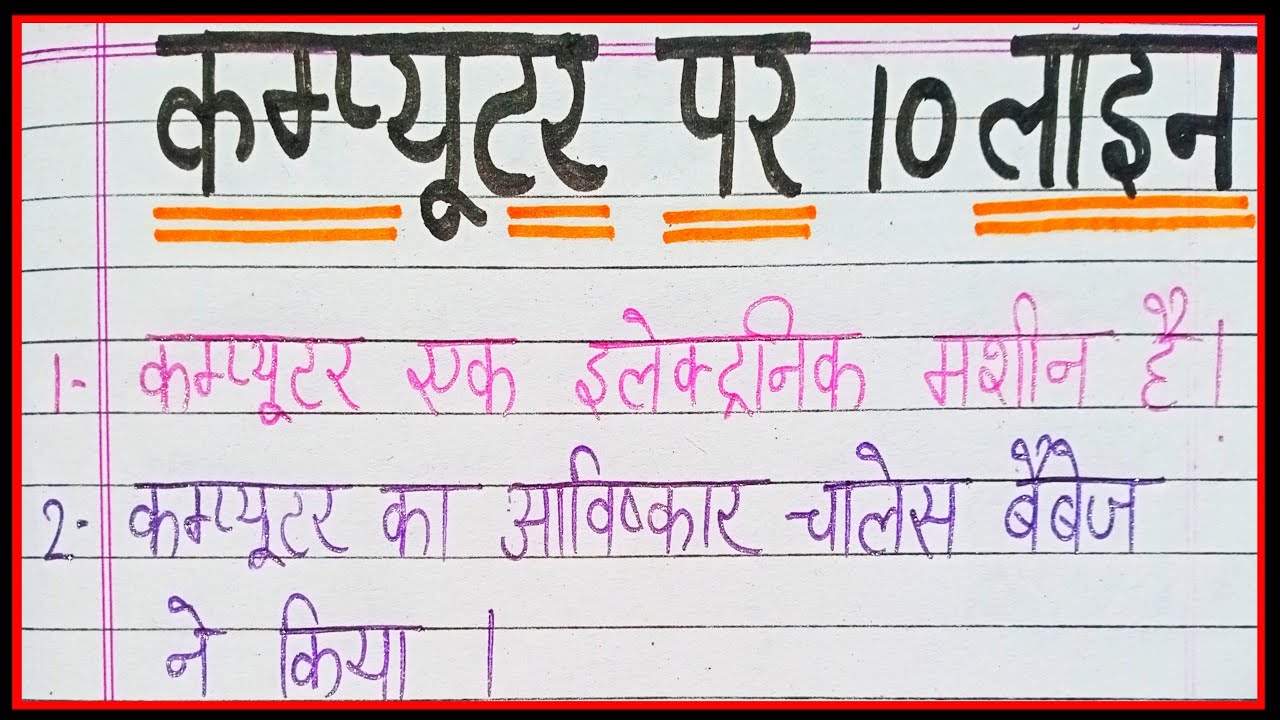 कम्प्यूटर पर 10 लाइन
1- कम्प्यूटर एक इलेक्ट्रनिक मशीन है।
2- कम्प्यूटर का आविष्कार चालेस बैबेज
ने किया ।